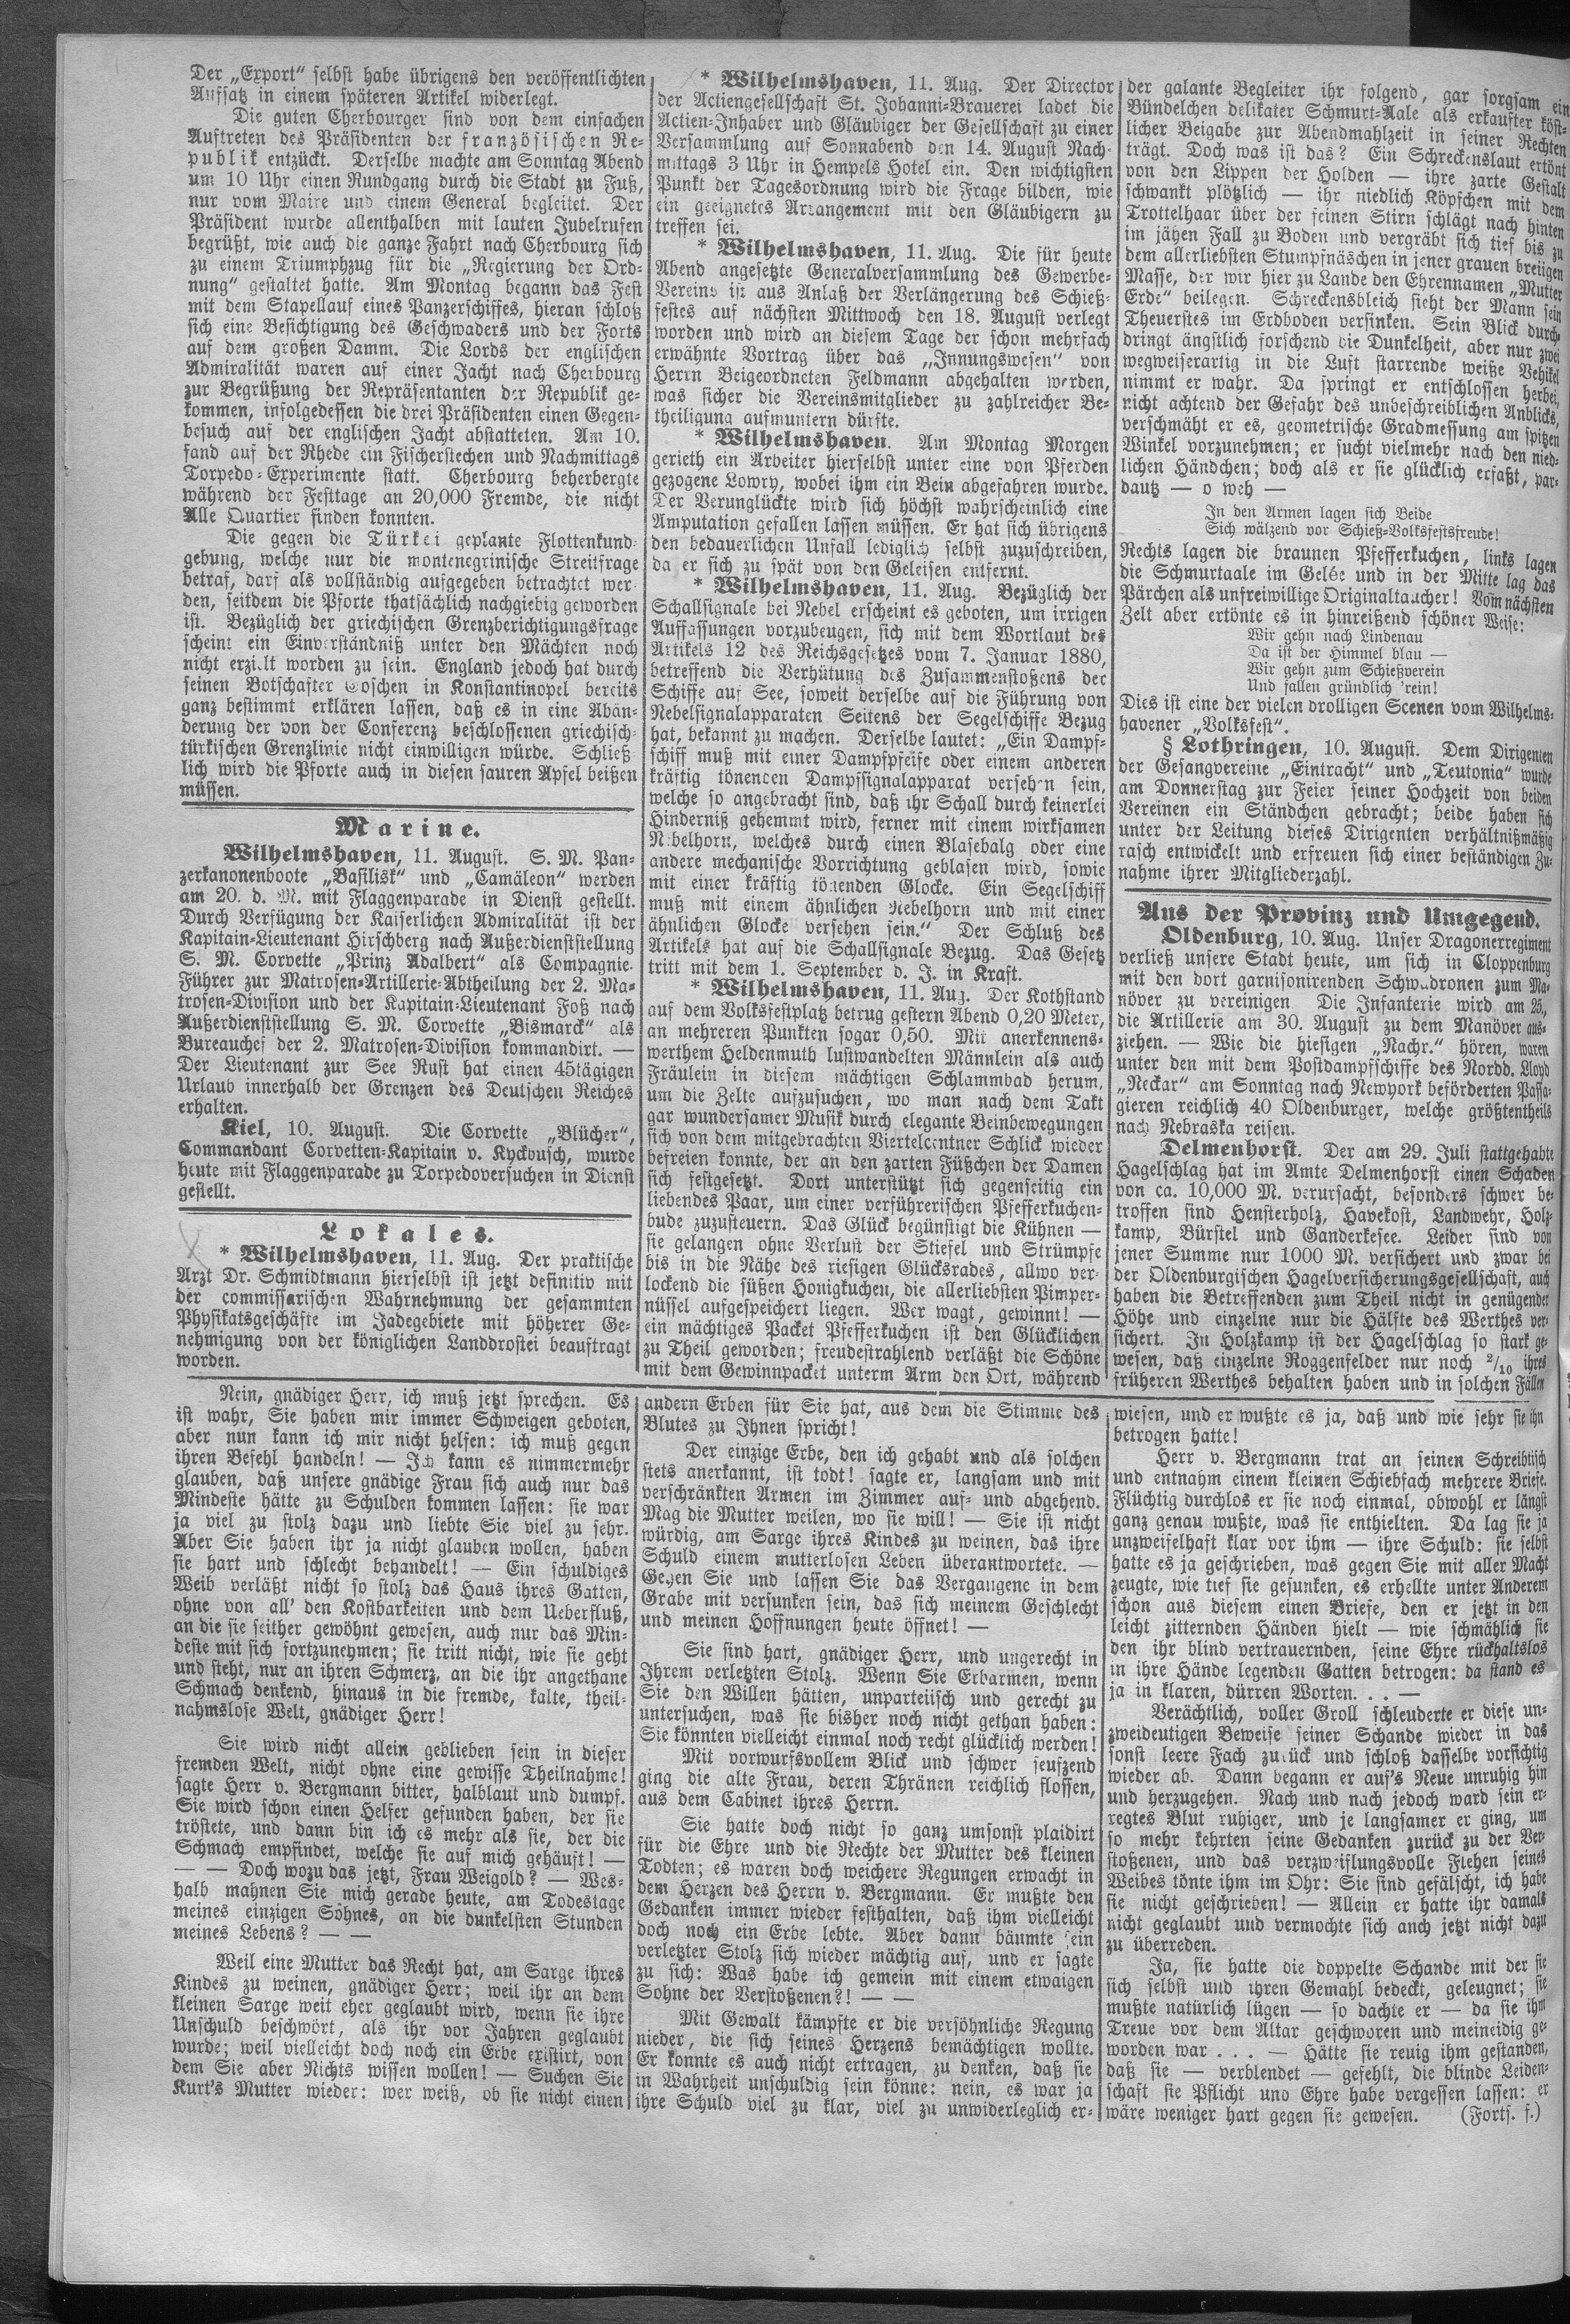 Der „Export“ selbst habe übrigens den veröffentlichten
Aufsatz in einem späteren Artikel widerlegt.
Die guten Cherbourger sind von dem einfachen
Auftreten des Präsidenten der französischen Re-
publik entzückt. Derselbe machte am Sonntag Abend
um 10 Uhr einen Rundgang durch die Stadt zu Fuß,
nur vom Maire und einem General begleitet. Der
Präsident wurde allenthalben mit lauten Jubelrufen
begrüßt, wie auch die ganze Fahrt nach Cherbourg sich
zu einem Triumphzug für die „Regierung der Ord-
nung“ gestaltet hatte. Am Montag begann das Fest
mit dem Stapellauf eines Panzerschiffes, hieran schloß
sich eine Besichtigung des Geschwaders und der Forts
auf dem großen Damm. Die Lords der englischen
Admiralität waren auf einer Jacht nach Cherbourg
zur Begrüßung der Repräsentanten der Republik ge-
kommen, infolgedessen die drei Präsidenten einen Gegen-
besuch auf der englischen Jacht abstatteten. Am 10.
fand auf der Rhede ein Fischerstechen und Nachmittags
Torpedo-Experimente statt. Cherbourg beherbergte
während der Festtage an 20,000 Fremde, die nicht
Alle Quartier finden konnten.
Die gegen die Türkei geplante Flottenkund-
gebung, welche nur die montenegrinische Streitfrage
betraf, darf als vollständig aufgegeben betrachtet wer-
den, seitdem die Pforte thatsächlich nachgiebig geworden
ist. Bezüglich der griechischen Grenzberichtigungsfrage
scheint ein Einverständniß unter den Mächten noch
nicht erzielt worden zu sein. England jedoch hat durch
seinen Botschafter Goschen in Konstantinopel bereits
ganz bestimmt erklären lassen, daß es in eine Abän-
derung der von der Conferenz beschlossenen griechisch-
türkischen Grenzlinie nicht einwilligen würde. Schließ-
lich wird die Pforte auch in diesen sauren Apfel beißen
müssen.
Marine.
Wilhelmshaven, 11. August. S. M. Pan-
zerkanonenboote „Basilisk“ und „Camäleon“ werden
am 20. d. M. mit Flaggenparade in Dienst gestellt.
Durch Verfügung der Kaiserlichen Admiralität ist der
Kapitain-Lieutenant Hirschberg nach Außerdienststellung
S. M. Corvette „Prinz Adalbert“ als Compagnie-
Führer zur Matrosen-Artillerie-Abtheilung der 2. Ma-
trosen-Division und der Kapitain-Lieutenant Foß nach
Außerdienststellung S. M. Corvette „Bismarck“ als
Bureauchef der 2. Matrosen-Division kommandirt. —
Der Lieutenant zur See Rust hat einen 45tägigen
Urlaub innerhalb der Grenzen des Deutschen Reiches
erhalten.
Kiel, 10. August. Die Corvette „Blücher“,
Commandant Corvetten-Kapitain v. Kyckbusch, wurde
heute mit Flaggenparade zu Torpedoversuchen in Dienst
gestellt.
Lokales.
* Wilhelmshaven, 11. Aug. Der praktische
Arzt Dr. Schmidtmann hierselbst ist jetzt definitiv mit
der commissarischen Wahrnehmung der gesammten
Physikatsgeschäfte im Jadegebiete mit höherer Ge-
nehmigung von der königlichen Landdrostei beauftragt
worden.
* Wilhelmshaven, 11. Aug. Der Director
der Actiengesellschaft St. Johanni-Brauerei ladet die
Actien-Inhaber und Gläubiger der Gesellschaft zu einer
Versammlung auf Sonnabend den 14. August Nach-
mittags 3 Uhr in Hempels Hotel ein. Den wichtigsten
Punkt der Tagesordnung wird die Frage bilden, wie
ein geeignetes Arrangement mit den Gläubigern zu
treffen sei.
* Wilhelmshaven, 11. Aug. Die für heute
Abend angesetzte Generalversammlung des Gewerbe-
Vereins ist aus Anlaß der Verlängerung des Schieß-
festes auf nächsten Mittwoch den 18. August verlegt
worden und wird an diesem Tage der schon mehrfach
erwähnte Vortrag über das „Innungswesen“ von
Herrn Beigeordneten Feldmann abgehalten werden,
was sicher die Vereinsmitglieder zu zahlreicher Be-
theiligung aufmuntern dürfte.
* Wilhelmshaven. Am Montag Morgen
gerieth ein Arbeiter hierselbst unter eine von Pferden
gezogene Lowry, wobei ihm ein Bein abgefahren wurde.
Der Verunglückte wird sich höchst wahrscheinlich eine
Amputation gefallen lassen müssen. Er hat sich übrigens
den bedauerlichen Unfall lediglich selbst zuzuschreiben,
da er sich zu spät von den Geleisen entfernt.
* Wilhelmshaven, 11. Aug. Bezüglich der
Schallsignale bei Nebel erscheint es geboten, um irrigen
Auffassungen vorzubeugen, sich mit dem Wortlaut des
Artikels 12 des Reichsgesetzes vom 7. Januar 1880,
betreffend die Verhütung des Zusammenstoßens der
Schiffe auf See, soweit derselbe auf die Führung von
Nebelsignalapparaten Seitens der Segelschiffe Bezug
hat, bekannt zu machen. Derselbe lautet: „Ein Dampf-
schiff muß mit einer Dampfpfeife oder einem anderen
kräftig tönenden Dampfsignalapparat versehen sein,
welche so angebracht sind, daß ihr Schall durch keinerlei
Hinderniß gehemmt wird, ferner mit einem wirksamen
Nebelhorn, welches durch einen Blasebalg oder eine
andere mechanische Vorrichtung geblasen wird, sowie
mit einer kräftig tönenden Glocke. Ein Segelschiff
muß mit einem ähnlichen Nebelhorn und mit einer
ähnlichen Glocke versehen sein.“ Der Schluß des
Artikels hat auf die Schallsignale Bezug. Das Gesetz
tritt mit dem 1. September d. J. in Kraft.
* Wilhelmshaven, 11. Aug. Der Kothstand
auf dem Volksfestplatz betrug gestern Abend 0,20 Meter,
an mehreren Punkten sogar 0,50. Mit anerkennens-
werthem Heldenmuth lustwandelten Männlein als auch
Fräulein in diesem mächtigen Schlammbad herum,
um die Zelte aufzusuchen, wo man nach dem Takt
gar wundersamer Musik durch elegante Beinbewegungen
sich von dem mitgebrachten Viertelcentner Schlick wieder
befreien konnte, der an den zarten Füßchen der Damen
sich festgesetzt. Dort unterstützt sich gegenseitig ein
liebendes Paar, um einer verführerischen Pfefferkuchen-
bude zuzusteuern. Das Glück begünstigt die Kühnen —
sie gelangen ohne Verlust der Stiefel und Strümpfe
bis in die Nähe des riesigen Glücksrades, allwo ver-
lockend die süßen Honigkuchen, die allerliebsten Pimper-
nüssel aufgespeichert liegen. Wer wagt, gewinnt! —
ein mächtiges Packet Pfefferkuchen ist den Glücklichen
zu Theil geworden; freudestrahlend verläßt die Schöne
mit dem Gewinnpacket unterm Arm den Ort, während
der galante Begleiter ihr folgend, gar sorgsam ein
Bündelchen delikater Schmurt-Aale als erkaufter köst-
licher Beigabe zur Abendmahlzeit in seiner Rechten
trägt. Doch was ist das? Ein Schreckenslaut ertönt
von den Lippen der Holden — ihre zarte Gestalt
schwankt plötzlich — ihr niedlich Köpfchen mit dem
Trottelhaar über der feinen Stirn schlägt nach hinten
im jähen Fall zu Boden und vergräbt sich tief bis zu
dem allerliebsten Stumpfnäschen in jener grauen breiigen
Masse, der wir hier zu Lande den Ehrennamen „Mutter
Erde“ beilegen. Schreckensbleich sieht der Mann sein
Theuerstes im Erdboden versinken. Sein Blick durch-
dringt ängstlich forschend die Dunkelheit, aber nur zwei
wegweiserartig in die Luft starrende weiße Vehikel
nimmt er wahr. Da springt er entschlossen herbei,
nicht achtend der Gefahr des unbeschreiblichen Anblicks,
verschmäht er es, geometrische Gradmessung am spitzen
Winkel vorzunehmen; er sucht vielmehr nach den nied-
lichen Händchen; doch als er sie glücklich erfaßt, par-
dautz — o weh —
In den Armen lagen sich Beide
Sich wälzend vor Schieß-Volksfestsfreude!
Rechts lagen die braunen Pfefferkuchen, links lagen
die Schmurtaale im Gelée und in der Mitte lag das
Pärchen als unfreiwillige Originaltaucher! Vom nächsten
Zelt aber ertönte es in hinreißend schöner Weise:
Wir gehn nach Lindenau
Da ist der Himmel blau —
Wir gehn zum Schießverein
Und fallen gründlich 'rein!
Dies ist eine der vielen drolligen Scenen vom Wilhelms-
havener „Volksfest“.
§ Lothringen, 10. August. Dem Dirigenten
der Gesangvereine „Eintracht“ und „Teutonia“ wurde
am Donnerstag zur Feier seiner Hochzeit von beiden
Vereinen ein Ständchen gebracht; beide haben sich
unter der Leitung dieses Dirigenten verhältnißmäßig
rasch entwickelt und erfreuen sich einer beständigen Zu-
nahme ihrer Mitgliederzahl.
Aus der Provinz und Umgegend.
Oldenburg, 10. Aug. Unser Dragonerregiment
verließ unsere Stadt heute, um sich in Cloppenburg
mit den dort garnisonirenden Schwadronen zum Ma-
növer zu vereinigen Die Infanterie wird am 25.,
die Artillerie am 30. August zu dem Manöver aus-
ziehen. — Wie die hiesigen „Nachr.“ hören, waren
unter den mit dem Postdampfschiffe des Nordd. Lloyd
„Neckar“ am Sonntag nach Newyork beförderten Passa-
gieren reichlich 40 Oldenburger, welche größtentheils
nach Nebraska reisen.
Delmenhorst. Der am 29. Juli stattgehabte
Hagelschlag hat im Amte Delmenhorst einen Schaden
von ca. 10,000 M. verursacht, besonders schwer be-
troffen sind Hensterholz, Havekost, Landwehr, Holz-
kamp, Bürstel und Ganderkesee. Leider sind von
jener Summe nur 1000 M. versichert und zwar bei
der Oldenburgischen Hagelversicherungsgesellschaft, auch
haben die Betreffenden zum Theil nicht in genügender
Höhe und einzelne nur die Hälfte des Werthes ver-
sichert. In Holzkamp ist der Hagelschlag so stark ge-
wesen, daß einzelne Roggenfelder nur noch 2/10 ihres
früheren Werthes behalten haben und in solchen Fällen
Nein, gnädiger Herr, ich muß jetzt sprechen. Es
ist wahr, Sie haben mir immer Schweigen geboten,
aber nun kann ich mir nicht helfen: ich muß gegen
ihren Befehl handeln! — Ich kann es nimmermehr
glauben, daß unsere gnädige Frau sich auch nur das
Mindeste hätte zu Schulden kommen lassen: sie war
ja viel zu stolz dazu und liebte Sie viel zu sehr.
Aber Sie haben ihr ja nicht glauben wollen, haben
sie hart und schlecht behandelt! — Ein schuldiges
Weib verläßt nicht so stolz das Haus ihres Gatten,
ohne von all' den Kostbarkeiten und dem Ueberfluß,
an die sie seither gewöhnt gewesen, auch nur das Min-
deste mit sich fortzunehmen; sie tritt nicht, wie sie geht
und steht, nur an ihren Schmerz, an die ihr angethane
Schmach denkend, hinaus in die fremde, kalte, theil-
nahmslose Welt, gnädiger Herr!
Sie wird nicht allein geblieben sein in dieser
fremden Welt, nicht ohne eine gewisse Theilnahme!
sagte Herr v. Bergmann bitter, halblaut und dumpf.
Sie wird schon einen Helfer gefunden haben, der sie
tröstete, und dann bin ich es mehr als sie, der die
Schmach empfindet, welche sie auf mich gehäuft! —
— — Doch wozu das jetzt, Frau Weigold? — Wes-
halb mahnen Sie mich gerade heute, am Todestage
meines einzigen Sohnes, an die dunkelsten Stunden
meines Lebens? — —
Weil eine Mutter das Recht hat, am Sarge ihres
Kindes zu weinen, gnädiger Herr; weil ihr an dem
kleinen Sarge weit eher geglaubt wird, wenn sie ihre
Unschuld beschwört, als ihr vor Jahren geglaubt
wurde; weil vielleicht doch noch ein Erbe existirt, von
dem Sie aber Nichts wissen wollen! — Suchen Sie
Kurt's Mutter wieder: wer weiß, ob sie nicht einen
andern Erben für Sie hat, aus dem die Stimme des
Blutes zu Ihnen spricht!
Der einzige Erbe, den ich gehabt und als solchen
stets anerkannt, ist todt! sagte er, langsam und mit
verschränkten Armen im Zimmer auf- und abgehend.
Mag die Mutter weilen, wo sie will! — Sie ist nicht
würdig, am Sarge ihres Kindes zu weinen, das ihre
Schuld einem mutterlosen Leben überantwortete. —
Gehen Sie und lassen Sie das Vergangene in dem
Grabe mit versunken sein, das sich meinem Geschlecht
und meinen Hoffnungen heute öffnet! —
Sie sind hart, gnädiger Herr, und ungerecht in
Ihrem verletzten Stolz. Wenn Sie Erbarmen, wenn
Sie den Willen hätten, unparteiisch und gerecht zu
untersuchen, was sie bisher noch nicht gethan haben:
Sie könnten vielleicht einmal noch recht glücklich werden!
Mit vorwurfsvollem Blick und schwer seufzend
ging die alte Frau, deren Thränen reichlich flossen,
aus dem Cabinet ihres Herrn.
Sie hatte doch nicht so ganz umsonst plaidirt
für die Ehre und die Rechte der Mutter des kleinen
Todten; es waren doch weichere Regungen erwacht in
dem Herzen des Herrn v. Bergmann. Er mußte den
Gedanken immer wieder festhalten, daß ihm vielleicht
doch noch ein Erbe lebte. Aber dann bäumte sein
verletzter Stolz sich wieder mächtig auf, und er sagte
zu sich: Was habe ich gemein mit einem etwaigen
Sohne der Verstoßenen?! — —
Mit Gewalt kämpfte er die versöhnliche Regung
nieder, die sich seines Herzens bemächtigen wollte.
Er konnte es auch nicht ertragen, zu denken, daß sie
in Wahrheit unschuldig sein könne: nein, es war ja
ihre Schuld viel zu klar, viel zu unwiderleglich er-
wiesen, und er wußte es ja, daß und wie sehr sie ihn
betrogen hatte!
Herr v. Bergmann trat an seinen Schreibtisch
und entnahm einem kleinen Schiebfach mehrere Briefe.
Flüchtig durchlos er sie noch einmal, obwohl er längst
ganz genau wußte, was sie enthielten. Da lag sie ja
unzweifelhaft klar vor ihm — ihre Schuld: sie selbst
hatte es ja geschrieben, was gegen Sie mit aller Macht
zeugte, wie tief sie gesunken, es erhellte unter Anderem
schon aus diesem einen Briefe, den er jetzt in den
leicht zitternden Händen hielt — wie schmählich sie
den ihr blind vertrauernden, seine Ehre rückhaltslos
in ihre Hände legenden Gatten betrogen: da stand es
ja in klaren, dürren Worten. . . —
Verächtlich, voller Groll schleuderte er diese un-
zweideutigen Beweise seiner Schande wieder in das
sonst leere Fach zurück und schloß dasselbe vorsichtig
wieder ab. Dann begann er auf's Neue unruhig hin
und herzugehen. Nach und nach jedoch ward sein er-
regtes Blut ruhiger, und je langsamer er ging, um
so mehr kehrten seine Gedanken zurück zu der Ver-
stoßenen, und das verzweiflungsvolle Flehen seines
Weibes tönte ihm im Ohr: Sie sind gefälscht, ich habe
sie nicht geschrieben! — Allein er hatte ihr damals
nicht geglaubt und vermochte sich auch jetzt nicht dazu
zu überreden.
Ja, sie hatte die doppelte Schande mit der sie
sich selbst und ihren Gemahl bedeckt, geleugnet; sie
mußte natürlich lügen — so dachte er — da sie ihm
Treue vor dem Altar geschworen und meineidig ge-
worden war . . . — Hätte sie reuig ihm gestanden,
daß sie — verblendet — gefehlt, die blinde Leiden-
schaft sie Pflicht und Ehre habe vergessen lassen: er
wäre weniger hart gegen sie gewesen. (Forts. f.)